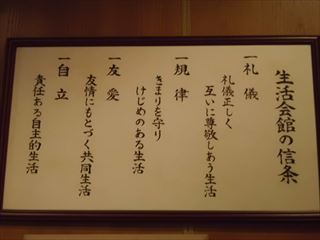 生活会館の信条
一礼儀
礼儀正しく
互いに尊敬しあう生活
一規律
きまりを守り
けじめのある生活
一友愛
友情にもとづく共同生活
一自立
責任ある自主的生活